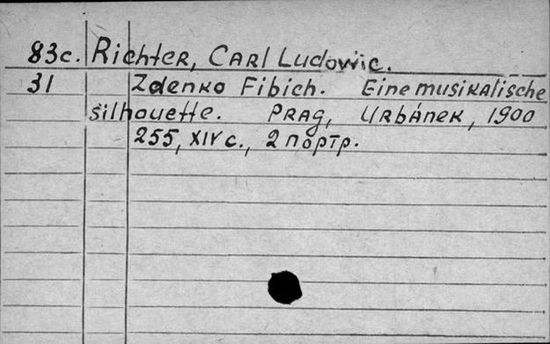 83c. Richter, Carl Ludowic.
31 Zdenko Fibich. Eine musikalische
silhouette. Prag, Urbánek, 1900
255, XIV с., 2 портр.